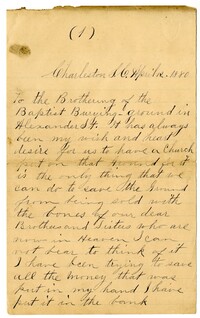 (1)
Charleston S C
1880
to the Brothering of the
Baptist Burying ground in
Alexander St. it has always
been my wish and heart
desire for us to have a Church
put on that Ground for it
is the only thing that we
can do to save the Ground
from being sold with
the bones of our dear
Brothers and Sisters who are
now in Heaven I can
not bear to think of it
I have been trying to save
all the money that was
put in my hand I have
put it in the bank